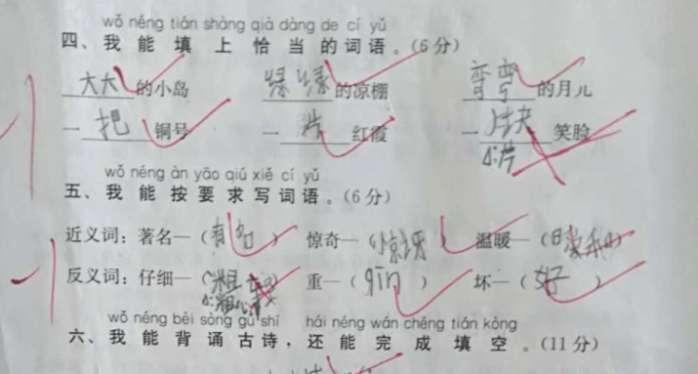 wǒ néng tián shàng qià dàng de cí yǔ
四、我能填上恰当的词语。(6分)
大大的小岛 绿绿的凉棚 弯弯的月儿
一把铜号 一片红霞 一块笑脸
片
-1
wǒ néng àn yāo qiú xiě cí yǔ
五、我能按要求写词语。(6分)
近义词：著名—(有名) 惊奇—(惊讶) 温暖—(暖和)
反义词：仔细—(粗) 重—(qīn) 坏—(好)
粗心
-1
wǒ néng bèi sòng gǔ shī hái néng wán chéng tián kòng
六、我能背诵古诗，还能完成填空。(11分)